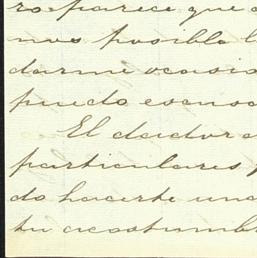 ro parece que
nos posible l
darme ocasio
puedo escusa
El dador
particulares
do hacerte una
tu acostumb